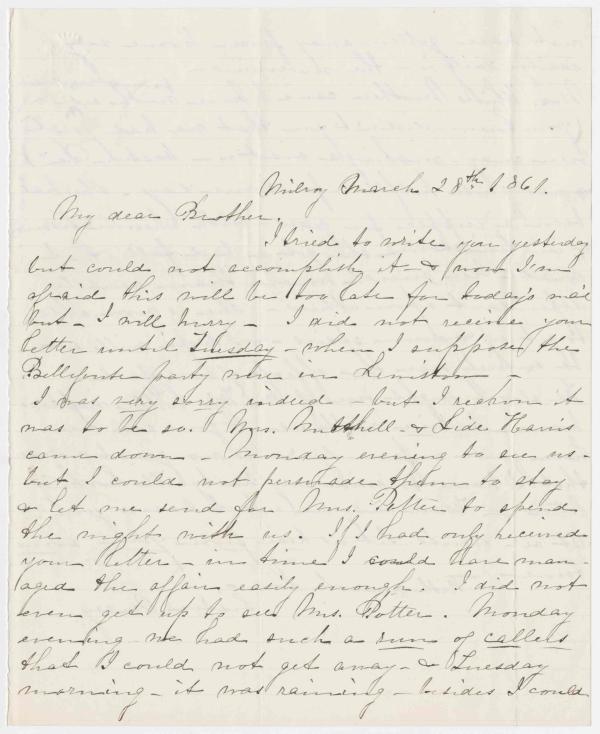 Milroy March 28th 1861.
My dear Brother.
I tried to write you yesterday
but could not accomplish it - & now I'm
afraid this will be too late for today's mail
but - I will hurry - I did not receive your
letter until Tuesday - when I suppose the
Bellefonte party were in Lewistown -
I was very sorry indeed - but I reckon it
was to be so. Mrs. Mitchell - & Lide Harris
came down - Monday evening to see us -
but I could not persuade them to stay
& let me send for Mrs. Potter to spend
the night with us. If I had only received
your letter - in time I could have man-
aged the affair easily enough. I did not
even get up to see Mrs. Potter. Monday
evening we had such a run of callers
that I could not get away - & Tuesday
morning - it was raining - besides I could